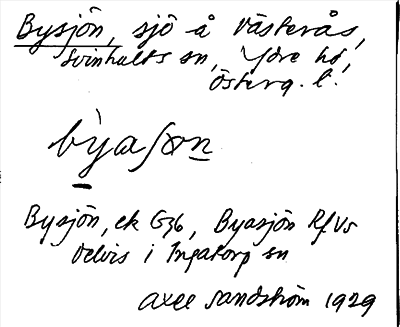 Bysjön, sjö å Västerås,
Svinhults sn, Ydre hd,
Österg. l.
byasön
Bysjön, ek G36, Byasjön Rf V5
delvis i Ingatorp sn
Axel Sandström 1929